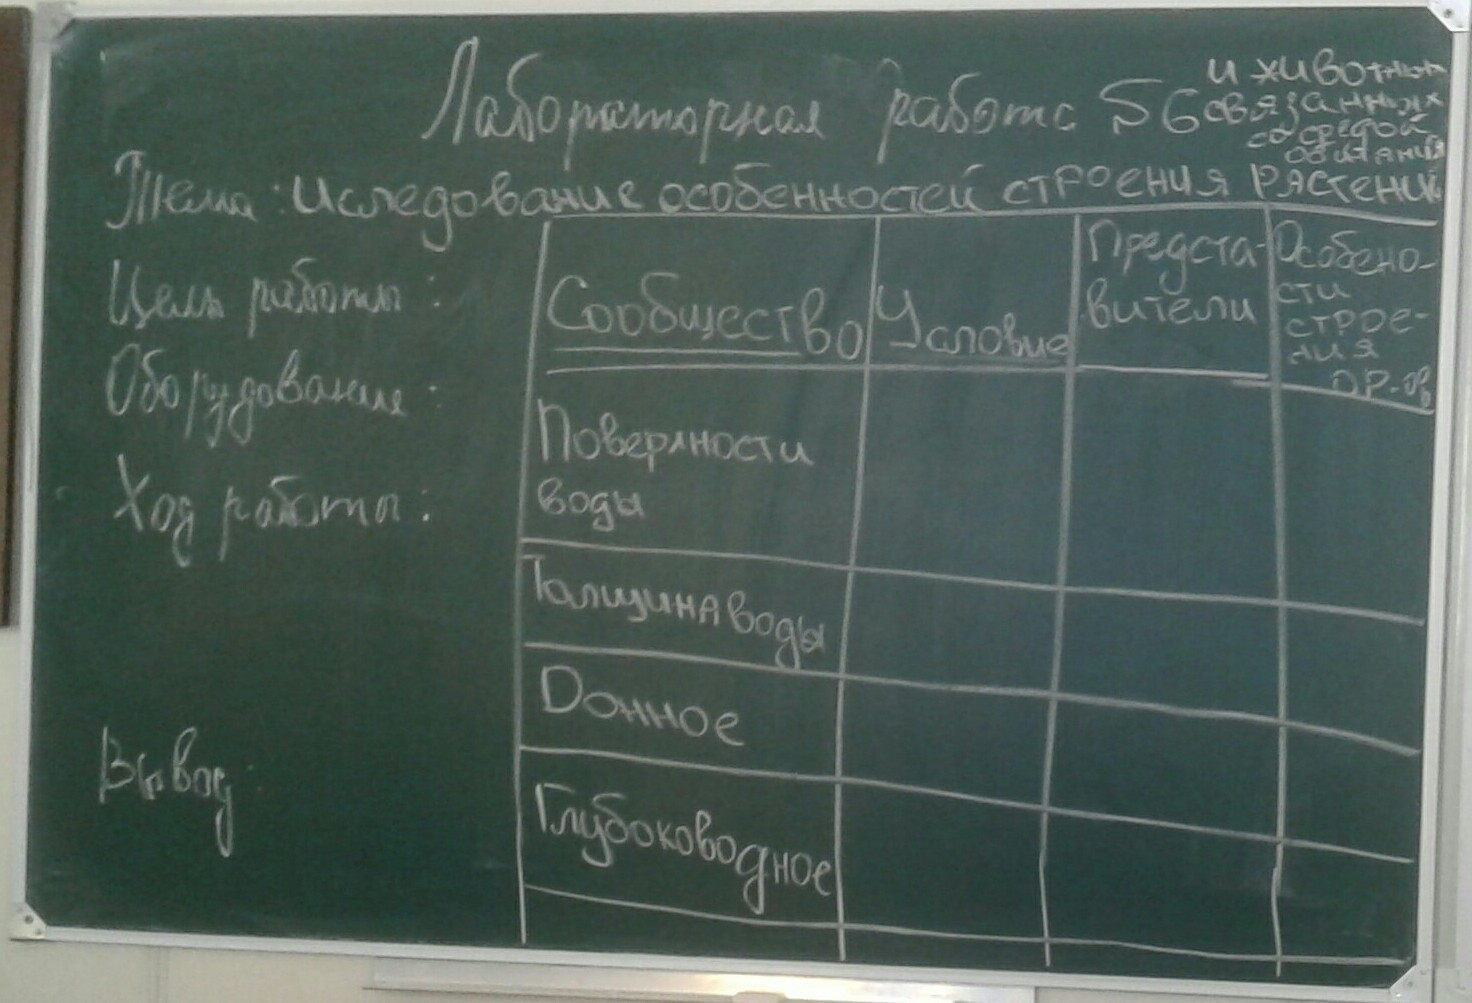 Лабораторная работа 56
Тема: Иследование особенностей строения растений
и животных
связанных
со средой
обитания
Цель работы:
Оборудование:
Ход работы:
Вывод:
Сообщество Условие Предста-вители Особено-сти строе-ния ор-ов
Поверхности
воды
Толщина воды
Донное
Глубоководное